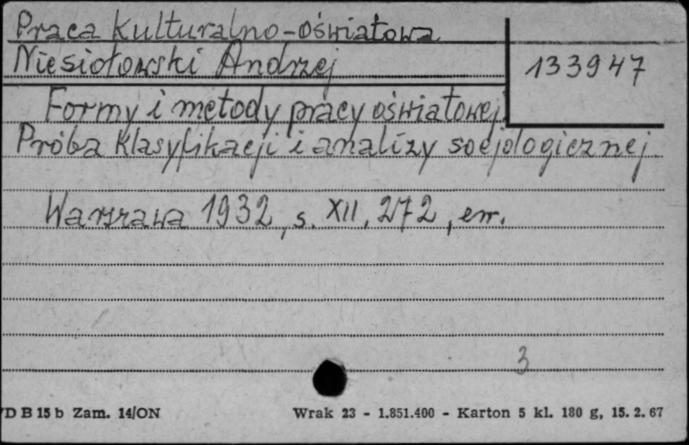 Praca kulturalno-oświatowa
Niesiołowski Andrzej
133947
Formy i metody pracy oświatowej
Próba klasyfikacji i analizy socjologicznej.
Warszawa 1932, s. XII, 272, err.
3
D B 15 b Zam. 14/ON
Wrak 23 - 1.851.400 - Karton 5 kl. 180 g, 15. 2. 67